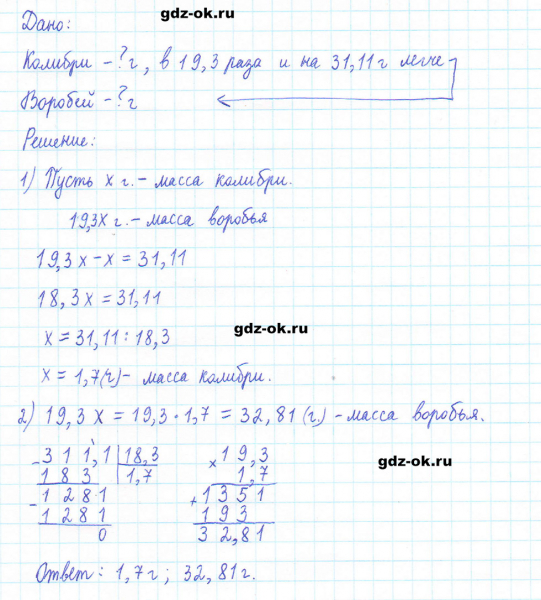 gdz-ok.ru
Дано:
Колибри - ? г, в 19,3 раза и на 31,11 г легче
Воробей - ? г
Решение:
1) Пусть x г. - масса колибри.
19,3x г. - масса воробья
19,3x - x = 31,11
18,3x = 31,11
gdz-ok.ru
x = 31,11 : 18,3
x = 1,7 (г) - масса колибри.
2) 19,3x = 19,3 · 1,7 = 32,81 (г) - масса воробья.
- 311,1 | 18,3
183 | 1,7
- 1281
1281
0
× 19,3
1,7
+ 1351
193
32,81
gdz-ok.ru
Ответ: 1,7 г; 32,81 г.